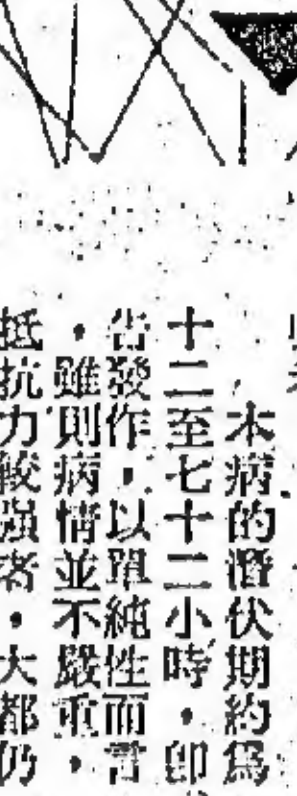 本病的潛伏期約爲
十二至七十二小時，即
發作，以單純性而言
，雖則病情並不嚴重，
抵抗力較強者，大都仍